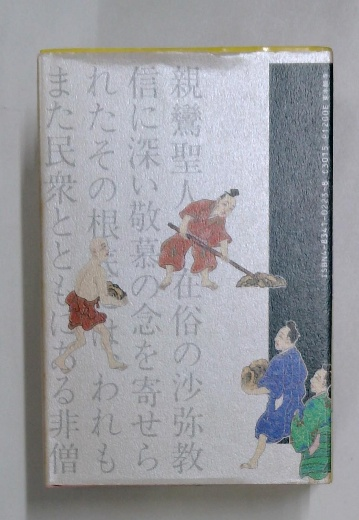 親鸞聖人 在俗の沙弥教
信に深い敬慕の念を寄せら
れたその根 われも
また民衆とともにある非僧
ISBN4-8341-0223-5 C3015 P1200E